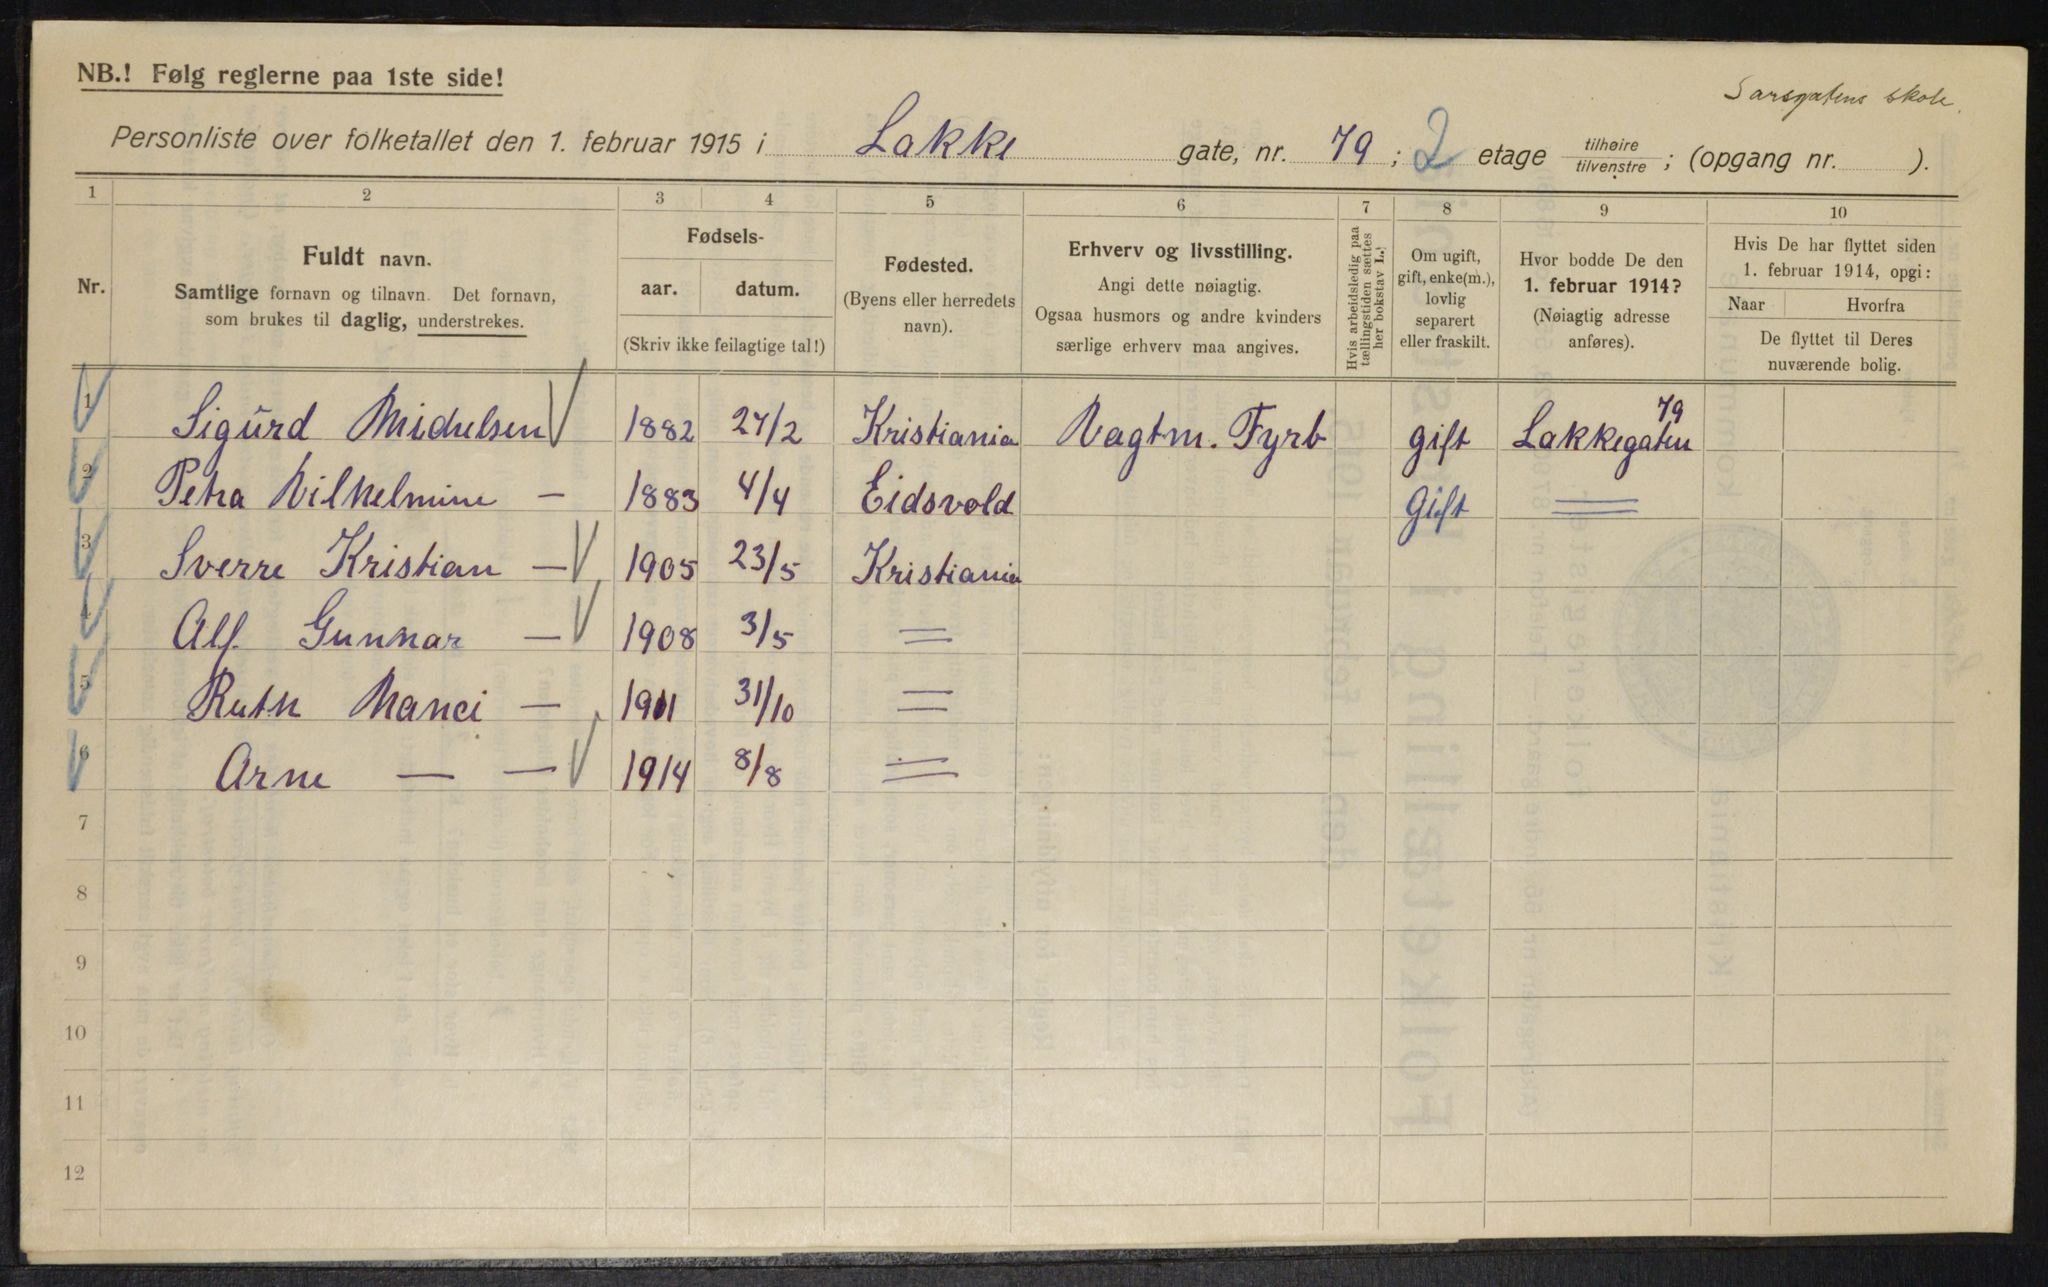 NB.! Følg reglerne paa 1ste side!
Sarsgatens skole.
Personliste over folketallet den 1. februar 1915 i Lakke gate, nr. 79 ; 2 etage tilhøire tilvenstre ; (opgang nr. ).
1 2 3 4 5 6 7 8 9 10
Nr.
Fuldt navn.
Samtlige fornavn og tilnavn. Det fornavn,
som brukes til daglig, understrekes.
Fødsels-
aar. datum.
(Skriv ikke feilagtige tal!)
Fødested.
(Byens eller herredets
navn).
Erhverv og livsstilling.
Angi dette nøiagtig.
Ogsaa husmors og andre kvinders
særlige erhverv maa angives.
Hvis arbeidsledig paa
tællingstiden sættes
her bokstav L.
Om ugift,
gift, enke(m.),
lovlig
separert
eller fraskilt.
Hvor bodde De den
1. februar 1914?
(Nøiagtig adresse
anføres).
Hvis De har flyttet siden
1. februar 1914, opgi:
Naar Hvorfra
De flyttet til Deres
nuværende bolig.
1 Sigurd Michelsen 1882 27/2 Kristiania Vagtm. Fyrb gift Lakkegaten 79
2 Petra Vilhelmine — 1883 4/4 Eidsvold Gift =
3 Sverre Kristian — 1905 23/5 Kristiania
4 Alf Gunnar — 1908 3/5 =
5 Ruth Nanci — 1911 31/10 =
6 Arne — — 1914 8/8 =
7
8
9
10
11
12